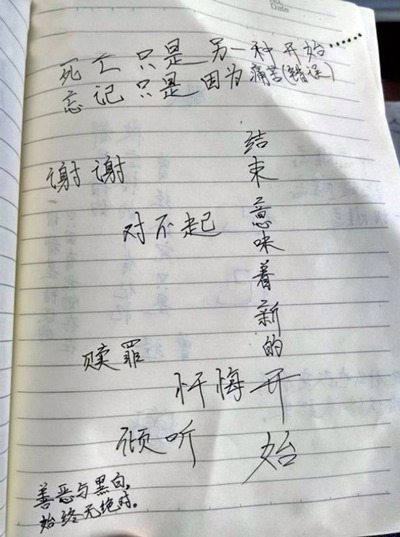 死亡只是另一种开始……
忘记只是因为痛苦(错误)
谢谢
对不起
结束意味着新的开始
赎罪
忏悔
倾听
善恶与黑白,
始终无绝对。